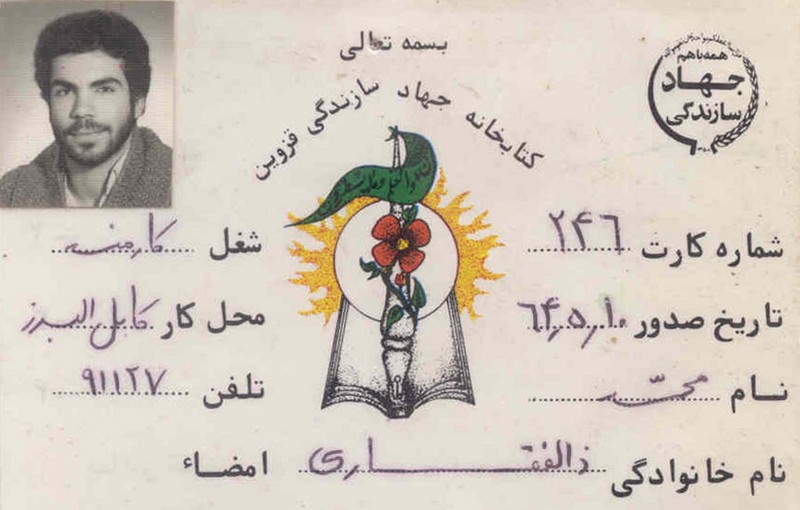 بسمه تعالی
کتابخانه جهاد سازندگی قزوین
همه با هم
جهاد
سازندگی
شماره کارت ۲۴۶
شغل کارمند
تاریخ صدور ۶۴٫۵٫۱۰
محل کار کابل البرز
نام محمّد
تلفن ۹۱۱۲۷
نام خانوادگی ذالفقاری
امضاء